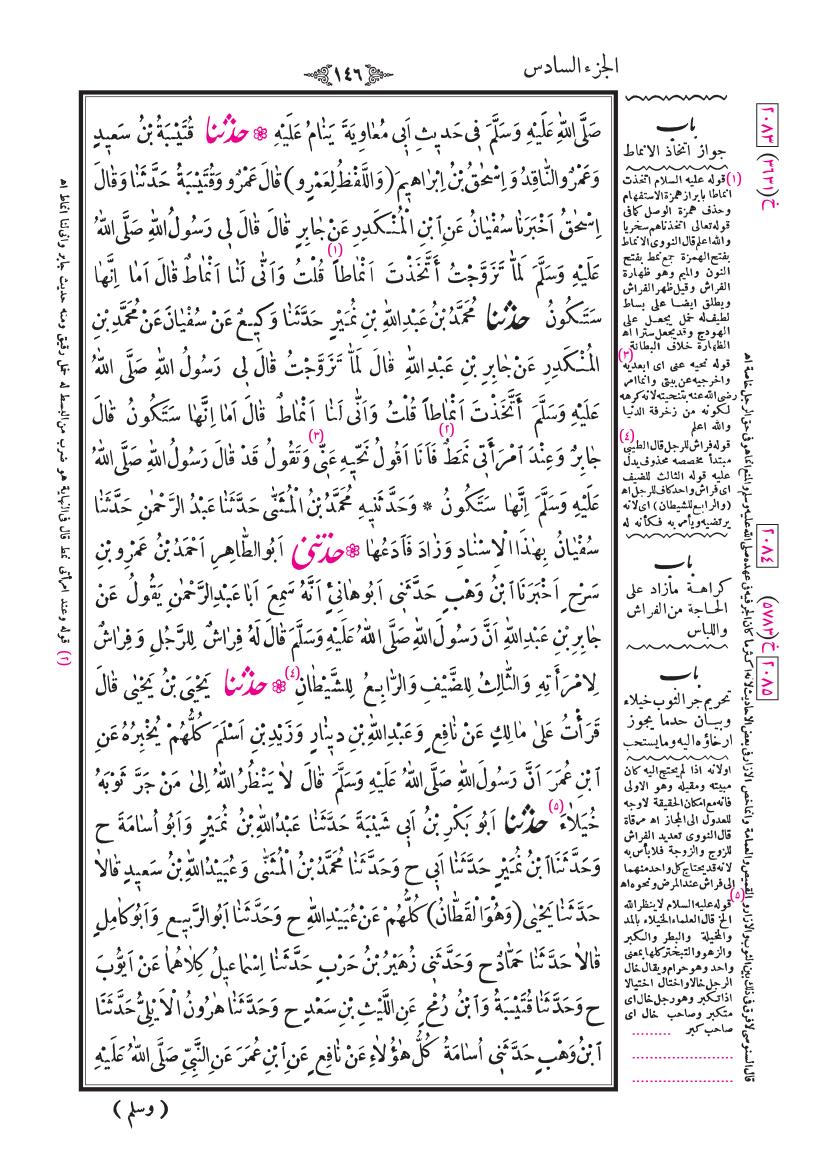 الجزء السادس
١٤٦
صَلَّى اللهُ عَلَيْهِ وَسَلَّمَ فِى حَديثِ اَبِى مُعَاوِيَةَ يَنَامُ عَلَيْهِ ❁ حَدَّثَنَا قُتَيْبَةُ بْنُ سَعيدٍ
وَعَمْرٌو النَّاقِدُ وَاِسْحٰقُ بْنُ اِبْرَاهيمَ (وَاللَّفْظُ لِعَمْرٍو) قَالَ عَمْرٌو وَقُتَيْبَةُ حَدَّثَنَا وَقَالَ
اِسْحٰقُ اَخْبَرَنَا سُفْيَانُ عَنِ ابْنِ الْمُنْكَدِرِ عَنْ جَابِرٍ قَالَ قَالَ لِى رَسُولُ اللهِ صَلَّى اللهُ
عَلَيْهِ وَسَلَّمَ لَمَّا تَزَوَّجْتُ اَتَّخَذْتَ اَنْمَاطاً (١) قُلْتُ وَاَنّٰى لَنَا اَنْمَاطٌ قَالَ اَمَا اِنَّهَا
سَتَكُونُ حَدَّثَنَا مُحَمَّدُ بْنُ عَبْدِ اللهِ بْنِ نُمَيْرٍ حَدَّثَنَا وَكيعٌ عَنْ سُفْيَانَ عَنْ مُحَمَّدِ بْنِ
الْمُنْكَدِرِ عَنْ جَابِرِ بْنِ عَبْدِ اللهِ قَالَ لَمَّا تَزَوَّجْتُ قَالَ لِى رَسُولُ اللهِ صَلَّى اللهُ
عَلَيْهِ وَسَلَّمَ اَتَّخَذْتَ اَنْمَاطاً قُلْتُ وَاَنّٰى لَنَا اَنْمَاطٌ قَالَ اَمَا اِنَّهَا سَتَكُونُ قَالَ
جَابِرٌ وَعِنْدَ امْرَأَتِى نَمَطٌ (٢) فَاَنَا اَقُولُ نَحّيهِ عَنّى (٣) وَتَقُولُ قَدْ قَالَ رَسُولُ اللهِ صَلَّى اللهُ
عَلَيْهِ وَسَلَّمَ اِنَّهَا سَتَكُونُ * وَحَدَّثَنيهِ مُحَمَّدُ بْنُ الْمُثَنّٰى حَدَّثَنَا عَبْدُ الرَّحْمٰنِ حَدَّثَنَا
سُفْيَانُ بِهٰذَا الْاِسْنَادِ وَزَادَ فَاَدَعُهَا ❁ حَدَّثَنى اَبُو الطَّاهِرِ اَحْمَدُ بْنُ عَمْرِو بْنِ
سَرْحٍ اَخْبَرَنَا ابْنُ وَهْبٍ حَدَّثَنى اَبُو هَانِئٍ اَنَّهُ سَمِعَ اَبَا عَبْدِ الرَّحْمٰنِ يَقُولُ عَنْ
جَابِرِ بْنِ عَبْدِ اللهِ اَنَّ رَسُولَ اللهِ صَلَّى اللهُ عَلَيْهِ وَسَلَّمَ قَالَ لَهُ فِرَاشٌ لِلرَّجُلِ وَفِرَاشٌ
لِامْرَأَتِهِ وَالثَّالِثُ لِلضَّيْفِ وَالرَّابِعُ لِلشَّيْطَانِ (٤) ❁ حَدَّثَنَا يَحْيَى بْنُ يَحْيٰى قَالَ
قَرَأْتُ عَلىٰ مَالِكٍ عَنْ نَافِعٍ وَعَبْدِ اللهِ بْنِ دينَارٍ وَزَيْدِ بْنِ اَسْلَمَ كُلُّهُمْ يُخْبِرُهُ عَنِ
ابْنِ عُمَرَ اَنَّ رَسُولَ اللهِ صَلَّى اللهُ عَلَيْهِ وَسَلَّمَ قَالَ لَا يَنْظُرُ اللهُ اِلىٰ مَنْ جَرَّ ثَوْبَهُ
خُيَلَاءَ (٥) حَدَّثَنَا اَبُو بَكْرِ بْنُ اَبِى شَيْبَةَ حَدَّثَنَا عَبْدُ اللهِ بْنُ نُمَيْرٍ وَاَبُو اُسَامَةَ ح
وَحَدَّثَنَا ابْنُ نُمَيْرٍ حَدَّثَنَا اَبِى ح وَحَدَّثَنَا مُحَمَّدُ بْنُ الْمُثَنّٰى وَعُبَيْدُ اللهِ بْنُ سَعيدٍ قَالَا
حَدَّثَنَا يَحْيٰى (وَهُوَ الْقَطَّانُ) كُلُّهُمْ عَنْ عُبَيْدِ اللهِ ح وَحَدَّثَنَا اَبُو الرَّبيعِ وَاَبُو كَامِلٍ
قَالَا حَدَّثَنَا حَمَّادٌ ح وَحَدَّثَنى زُهَيْرُ بْنُ حَرْبٍ حَدَّثَنَا اِسْمَاعيلُ كِلَاهُمَا عَنْ اَيُّوبَ
ح وَحَدَّثَنَا قُتَيْبَةُ وَابْنُ رُمْحٍ عَنِ اللَّيْثِ بْنِ سَعْدٍ ح وَحَدَّثَنَا هٰرُونُ الْاَيْلِىُّ حَدَّثَنَا
ابْنُ وَهْبٍ حَدَّثَنى اُسَامَةُ كُلُّ هٰؤُلَاءِ عَنْ نَافِعٍ عَنِ ابْنِ عُمَرَ عَنِ النَّبِىِّ صَلَّى اللهُ عَلَيْهِ
( وسلم )
٢٠٨٣
خ (٣٦٣١)
باب
جواز اتخاذ الانماط
(١) قوله عليه السلام اتخذت
انماطا بابراز همزة الاستفهام
وحذف همزة الوصل كما فى
قوله تعالى اتخذناهم سخريا
والله اعلم قال النووى الانماط
بفتح الهمزة جمع نمط بفتح
النون والميم وهو ظهارة
الفراش وقيل ظهر الفراش
ويطلق ايضا على بساط
لطيف له خمل يجعل على
الهودج وقد يجعل سترا اه
الظهارة خلاف البطانة
(٣) قوله نحيه عنى اى ابعديه
واخرجيه عن بيتى وانما امر
رضى الله عنه بتنحيته لانه كرهه
لكونه من زخرفة الدنيا
والله اعلم
(٤) قوله فراش للرجل قال الطيبى
مبتدأ مخصصه محذوف يدل
عليه قوله الثالث للضيف
اى فراش واحد كاف للرجل اه
(والرابع للشيطان) اى لانه
يرتضيه ويأمر به فكأنه له
٢٠٨٤
باب
كراهة مازاد على
الحاجة من الفراش
واللباس
٢٠٨٥ خ (٥٧٨٣)
باب
تحريم جر الثوب خيلاء
وبيان حد ما يجوز
ارخاؤه اليه وما يستحب
اولانه اذا لم يحتج اليه كان
مبيته ومقيله وهو الاولى
فانه مع امكان الحقيقة لاوجه
للعدول الى المجاز اه مرقاة
قال النووى تعديد الفراش
للزوج والزوجة فلابأس به
لانه قد يحتاج كل واحد منهما
الى فراش عند المرض ونحوه اه
(٥) قوله عليه السلام لا ينظر الله
الخ قال العلماء الخيلاء بالمد
والمخيلة والبطر والكبر
والزهو والتبختر كلها بمعنى
واحد وهو حرام ويقال خال
الرجل خالا واختال اختيالا
اذا تكبر وهو رجل خال اى
متكبر وصاحب خال اى
صاحب كبر
(٢) قوله وعند امرأتى نمط قال فى النهاية هو ضرب من البسط له خمل رقيق ومنه حديث جابر وانى لنا انماط اه